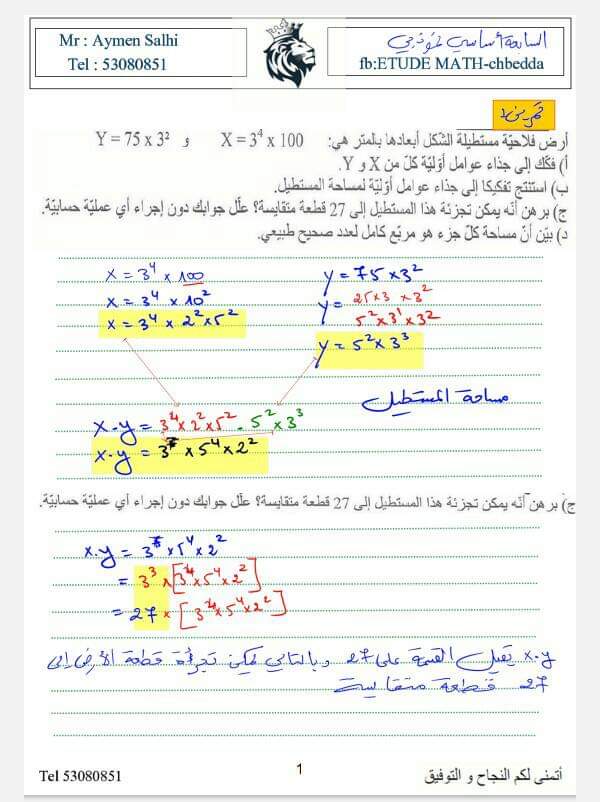 Mr : Aymen Salhi
Tel : 53080851
السابعة أساسي نموذجي
fb:ETUDE MATH-chbedda
تمرين 1
أرض فلاحيّة مستطيلة الشّكل أبعادها بالمتر هي: X = 3⁴ x 100 و Y = 75 x 3²
أ) فكّك إلى جذاء عوامل أوّليّة كلّ من X و Y.
ب) استنتج تفكيكا إلى جذاء عوامل أوّليّة لمساحة المستطيل.
ج) برهن أنّه يمكن تجزئة هذا المستطيل إلى 27 قطعة متقايسة؟ علّل جوابك دون إجراء أي عمليّة حسابيّة.
د) بيّن أنّ مساحة كلّ جزء هو مربّع كامل لعدد صحيح طبيعي.
x = 3⁴ x 100
x = 3⁴ x 10²
x = 3⁴ x 2² x 5²
y = 75 x 3²
y = 25 x 3 x 3²
5² x 3¹ x 3²
y = 5² x 3³
مساحة المستطيل
x.y = 3⁴ x 2² x 5² . 5² x 3³
x.y = 3⁷ x 5⁴ x 2²
ج) برهن أنّه يمكن تجزئة هذا المستطيل إلى 27 قطعة متقايسة؟ علّل جوابك دون إجراء أي عمليّة حسابيّة.
x.y = 3⁷ x 5⁴ x 2²
= 3³ x [3⁴ x 5⁴ x 2²]
= 27 x [3⁴ x 5⁴ x 2²]
x.y يقبل القسمة على 27 وبالتالي يمكن تجزأة قطعة الأرض إلى
27 قطعة متقايسة
Tel 53080851
1
أتمنى لكم النجاح و التوفيق